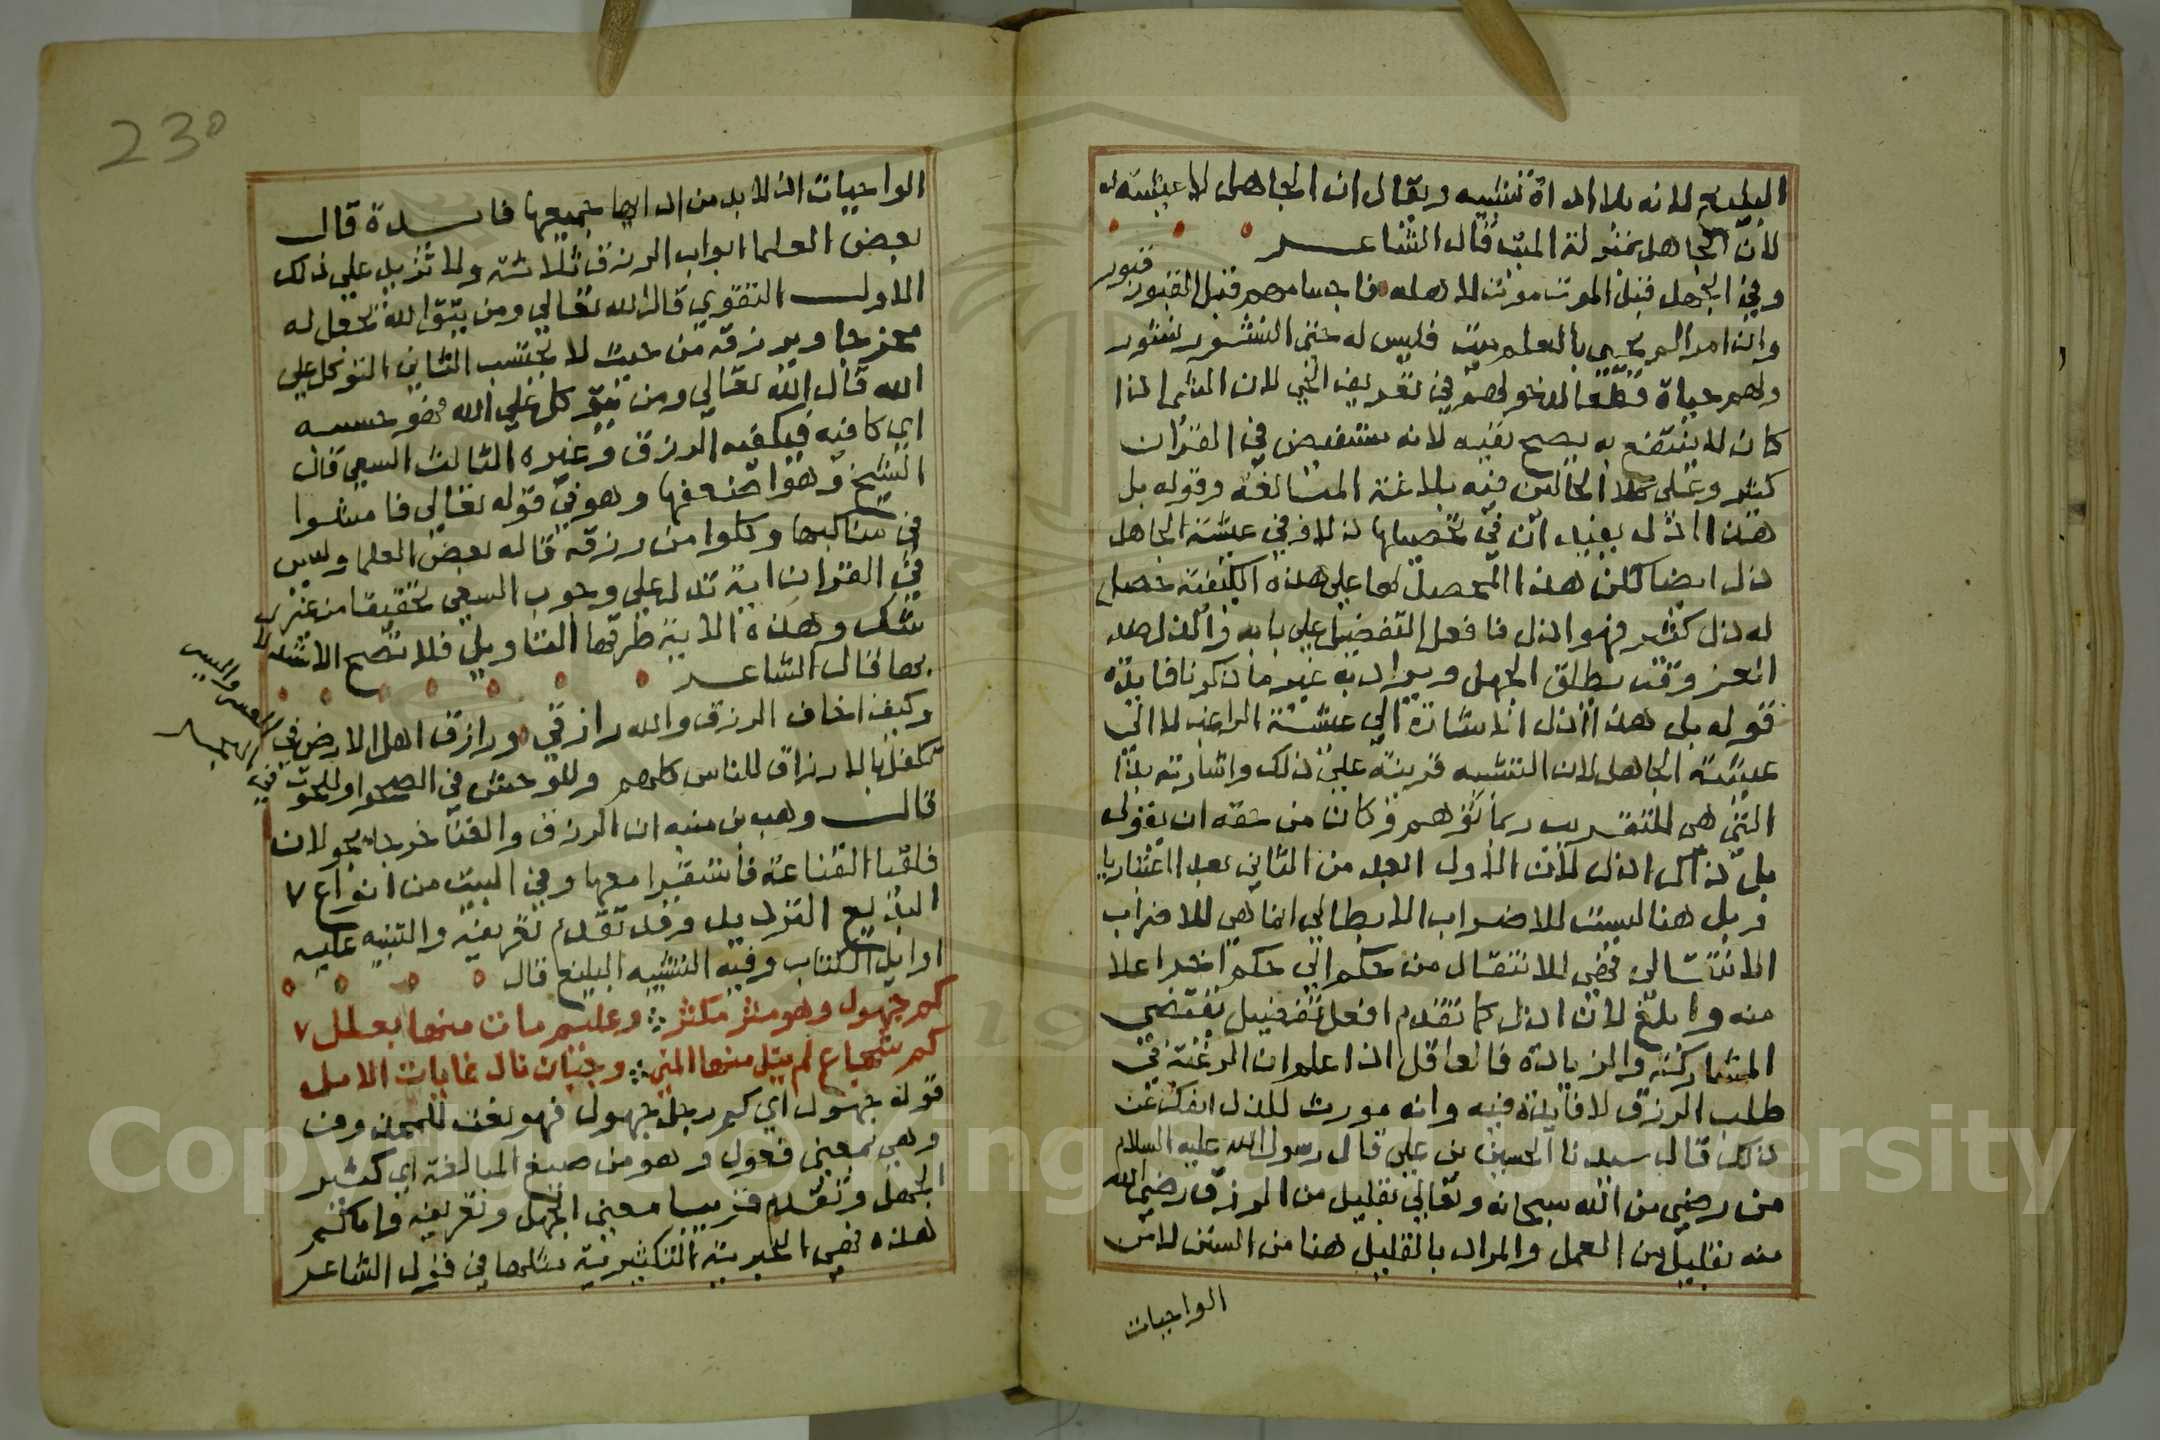 البليغ لانه بلا اداة تشبيه ويقال ان الجاهل لا عيشة له
لأن الجاهل بمنزلة الميت قال الشاعر
وفي الجهل قبل الموت موت لاهله فاجسامهم قبل القبور قبور
وان امرا لم يحيي بالعلم ميت فليس له حتى النشور نشور
ولهم حياة قطعا لدخولهم في تعريف الحي لان الشي اذا
كان لا ينتفع به يصح نفيه لانه مستفيض في القران
كثير وعلى كلا الحالين فيه بلاغة المبالغة وقوله بل
هذا اذل يفيد ان في تحصيلها ذلا وفي عيشة الجاهل
ذل ايضا لكن هذا المحصل لها على هذه الكيفية حصل
له ذل كثير فهو اذل فافعل التفضيل على بابه والذل ضد
العز وقد يطلق الجهل ويراد به غير ما ذكرنا فايدة
قوله بل هذا اذل اشارة الى عيشة الراغب لا الى
عيشة الجاهل لان التشبيه قرينة على ذلك واشارته بذا
التي هي للتقريب ربما توهم وكان من حقه ان يقول
بل ذاك اذل لأن الأول ابعد من الثاني بعدا اعتباريا
وبل هنا ليست للاضراب الابطالي انما هي للاضراب
الانتقالي فهي للانتقال من حكم الى حكم اخر اعلا
منه وابلغ لان اذل كما تقدم افعل تفضيل يقتضي
المشاركة والزيادة فالعاقل اذا علم ان الرغبة في
طلب الرزق لا فايدة فيه وانه مورث للذل انفك عن
ذلك قال سيدنا الحسين بن علي قال رسول الله عليه السلام
من رضي من الله سبحانه وتعالى بقليل من الرزق رضي الله
منه بقليل من العمل والمراد بالقليل هنا من السنن لان
الواجبات
230
الواجبات لا بد من اداها جميعها فايدة قال
بعض العلما ابواب الرزق ثلاثة ولا تزيد علي ذلك
الاول التقوي قال الله تعالي ومن يتق الله يجعل له
مخرجا ويرزقه من حيث لا يحتسب الثاني التوكل علي
الله قال الله تعالي ومن يتوكل علي الله فهو حسبه
اي كافيه فيكفيه الرزق وغيره الثالث السعي قال
الشيخ وهو اضعفها وهو في قوله تعالي فامشوا
في مناكبها وكلوا من رزقه قاله بعض العلما وليس
في القران اية تدل علي وجوب السعي تحقيقا من غير
شك وهذه الاية طرقها التاويل فلا تصح الاستدلال
بها قال الشاعر
وكيف اخاف الرزق والله رازقي ورازق اهل الارض في العسر واليسر
تكفل بالارزاق للناس كلهم وللوحش في الصحراو للحوت في البحر
قال وهب بن منبه ان الرزق والغنا خرجا يجولان
فلقيا القناعة فاستقرا معها وفي البيت من انواع
البديع التذييل وقد تقدم تعريفه والتنبيه عليه
اوايل الكتاب وفيه التشبيه البليغ قال
كم جهول وهو مثر مكثر وعليم مات منها بعلل
كم شجاع لم ينل منها المني وجبان نال غايات الامل
قوله جهول اي كم رجل جهول فهو نعت لمحذوف
وهي بمعني فعول وهو من صيغ المبالغة اي كثير
الجهل وتقدم قريبا معني الجهل وتعريفه واما كم
هذه فهي الخبرية التكثيرية مثلها في قول الشاعر